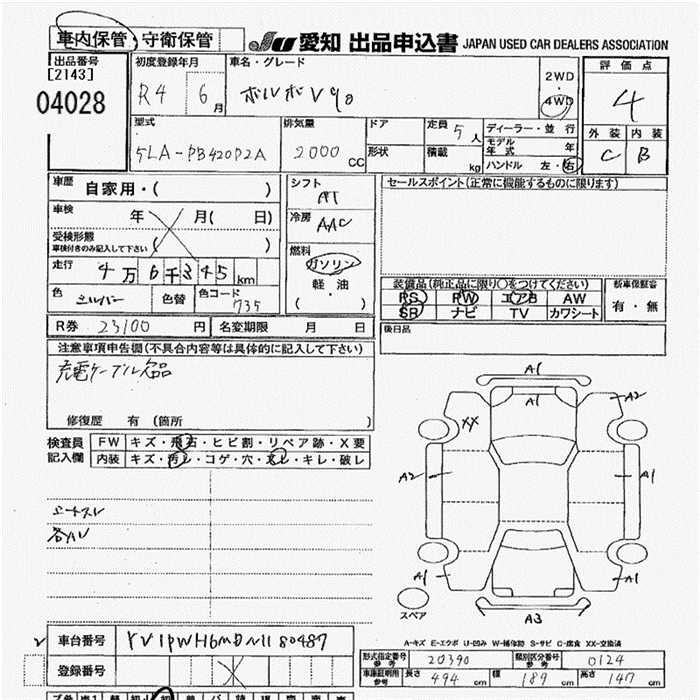 車内保管・守衛保管
JU 愛知 出品申込書 JAPAN USED CAR DEALERS ASSOCIATION
出品番号 初度登録年月 車名・グレード 評価点
[2143]
04028
R4 6月 ボルボV90 2WD・4WD 4
型式 排気量 ドア 定員 5人 ディーラー・並行 外装 内装
5LA-PB420P2A 2000CC 形状 積載 kg モデル年式 年 C B
ハンドル 左・右
車歴 自家用・( ) シフト AT セールスポイント(正常に機能するものに限ります)
車検 年 月( 日) 冷房 AAC
受検形態
車検付きのみ記入して下さい ( )
燃料 ガソリン
軽・油
( )
走行 4万6千345km
色 シルバー 色替 色コード 735
装備品(純正品に限り○をつけてください) 新車保証書
PS PW エアB AW 有・無
SR ナビ TV カワシート
R券 23100円 名変期限 月 日 後日品
注意事項申告欄(不具合内容等は具体的に記入して下さい)
充電ケーブル欠品
修復歴 有(箇所 )
検査員記入欄 FW キズ・飛石・ヒビ割・リペア跡・X要
内装 キズ・汚レ・コゲ・穴・スレ・キレ・破レ
A1
A1
A2
XX
A2
A1
A1
A1
A3
スペア
A-キズ E-エクボ U-凹み W-補修跡 S-サビ C-腐食 XX-交換済
車台番号 YV1PWH6MDN1180487
登録番号
形式指定番号 参考 20390 類別区分番号 参考 0124
車庫証明用 参考 長さ 494cm 幅 189cm 高さ 147cm